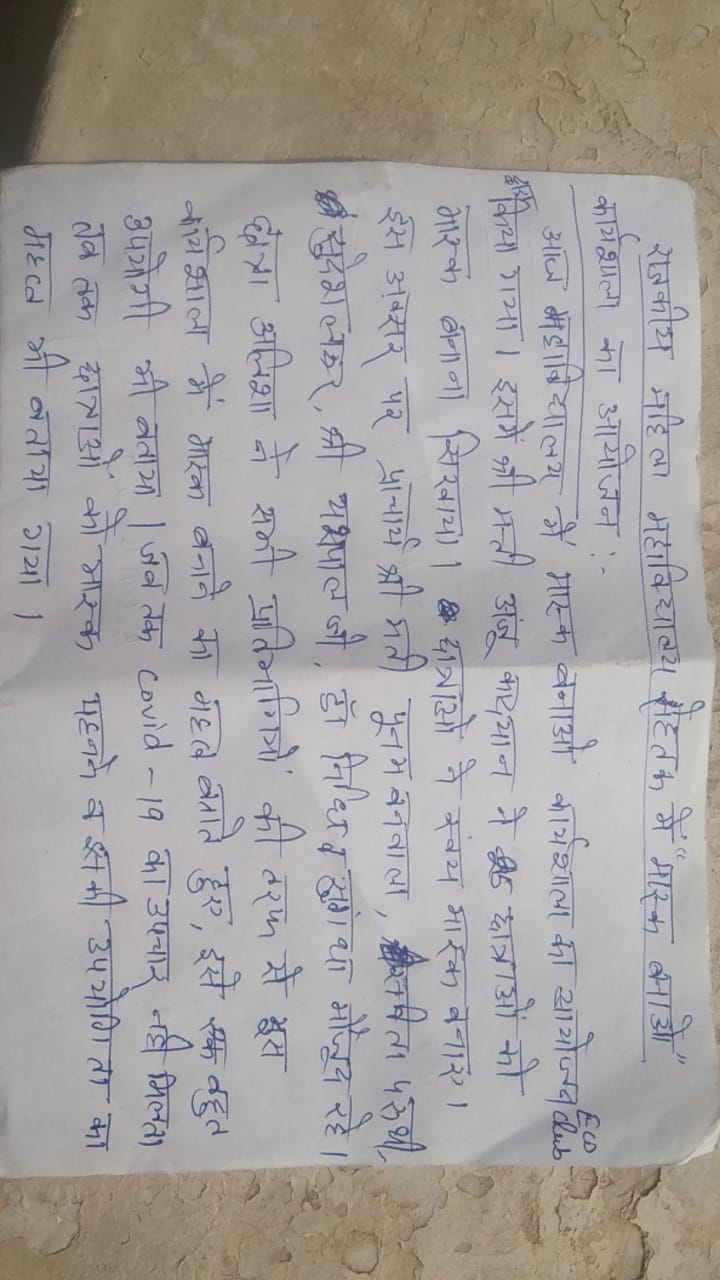 राजकीय महिला महाविद्यालय रोहतक में "मास्क बनाओ"
कार्यशाला का आयोजन :-
आज महाविद्यालय में मास्क बनाओ कार्यशाला का आयोजन Eco Club
किया गया। इसमें श्री मती अंजू कादयान ने छात्राओं को
मास्क बनाना सिखाया। छात्राओं ने स्वंय मास्क बनाए।
इस अवसर पर प्राचार्य श्री मती पूनम बनवाला,
सुदेश लाकर, श्री यशपाल जी, डॉ निधि व सुगंधा मौजूद रहे।
छात्रा अनिशा ने सभी प्रतिभागियों की तरफ से इस
कार्यशाला में मास्क बनाने का महत्व बताते हुए, इसे एक बहुत
उपयोगी भी बताया। जब तक Covid-19 का उपचार नही मिलता
तब तक छात्राओं को मास्क पहनने व इसकी उपयोगिता का
महत्व भी बताया गया।